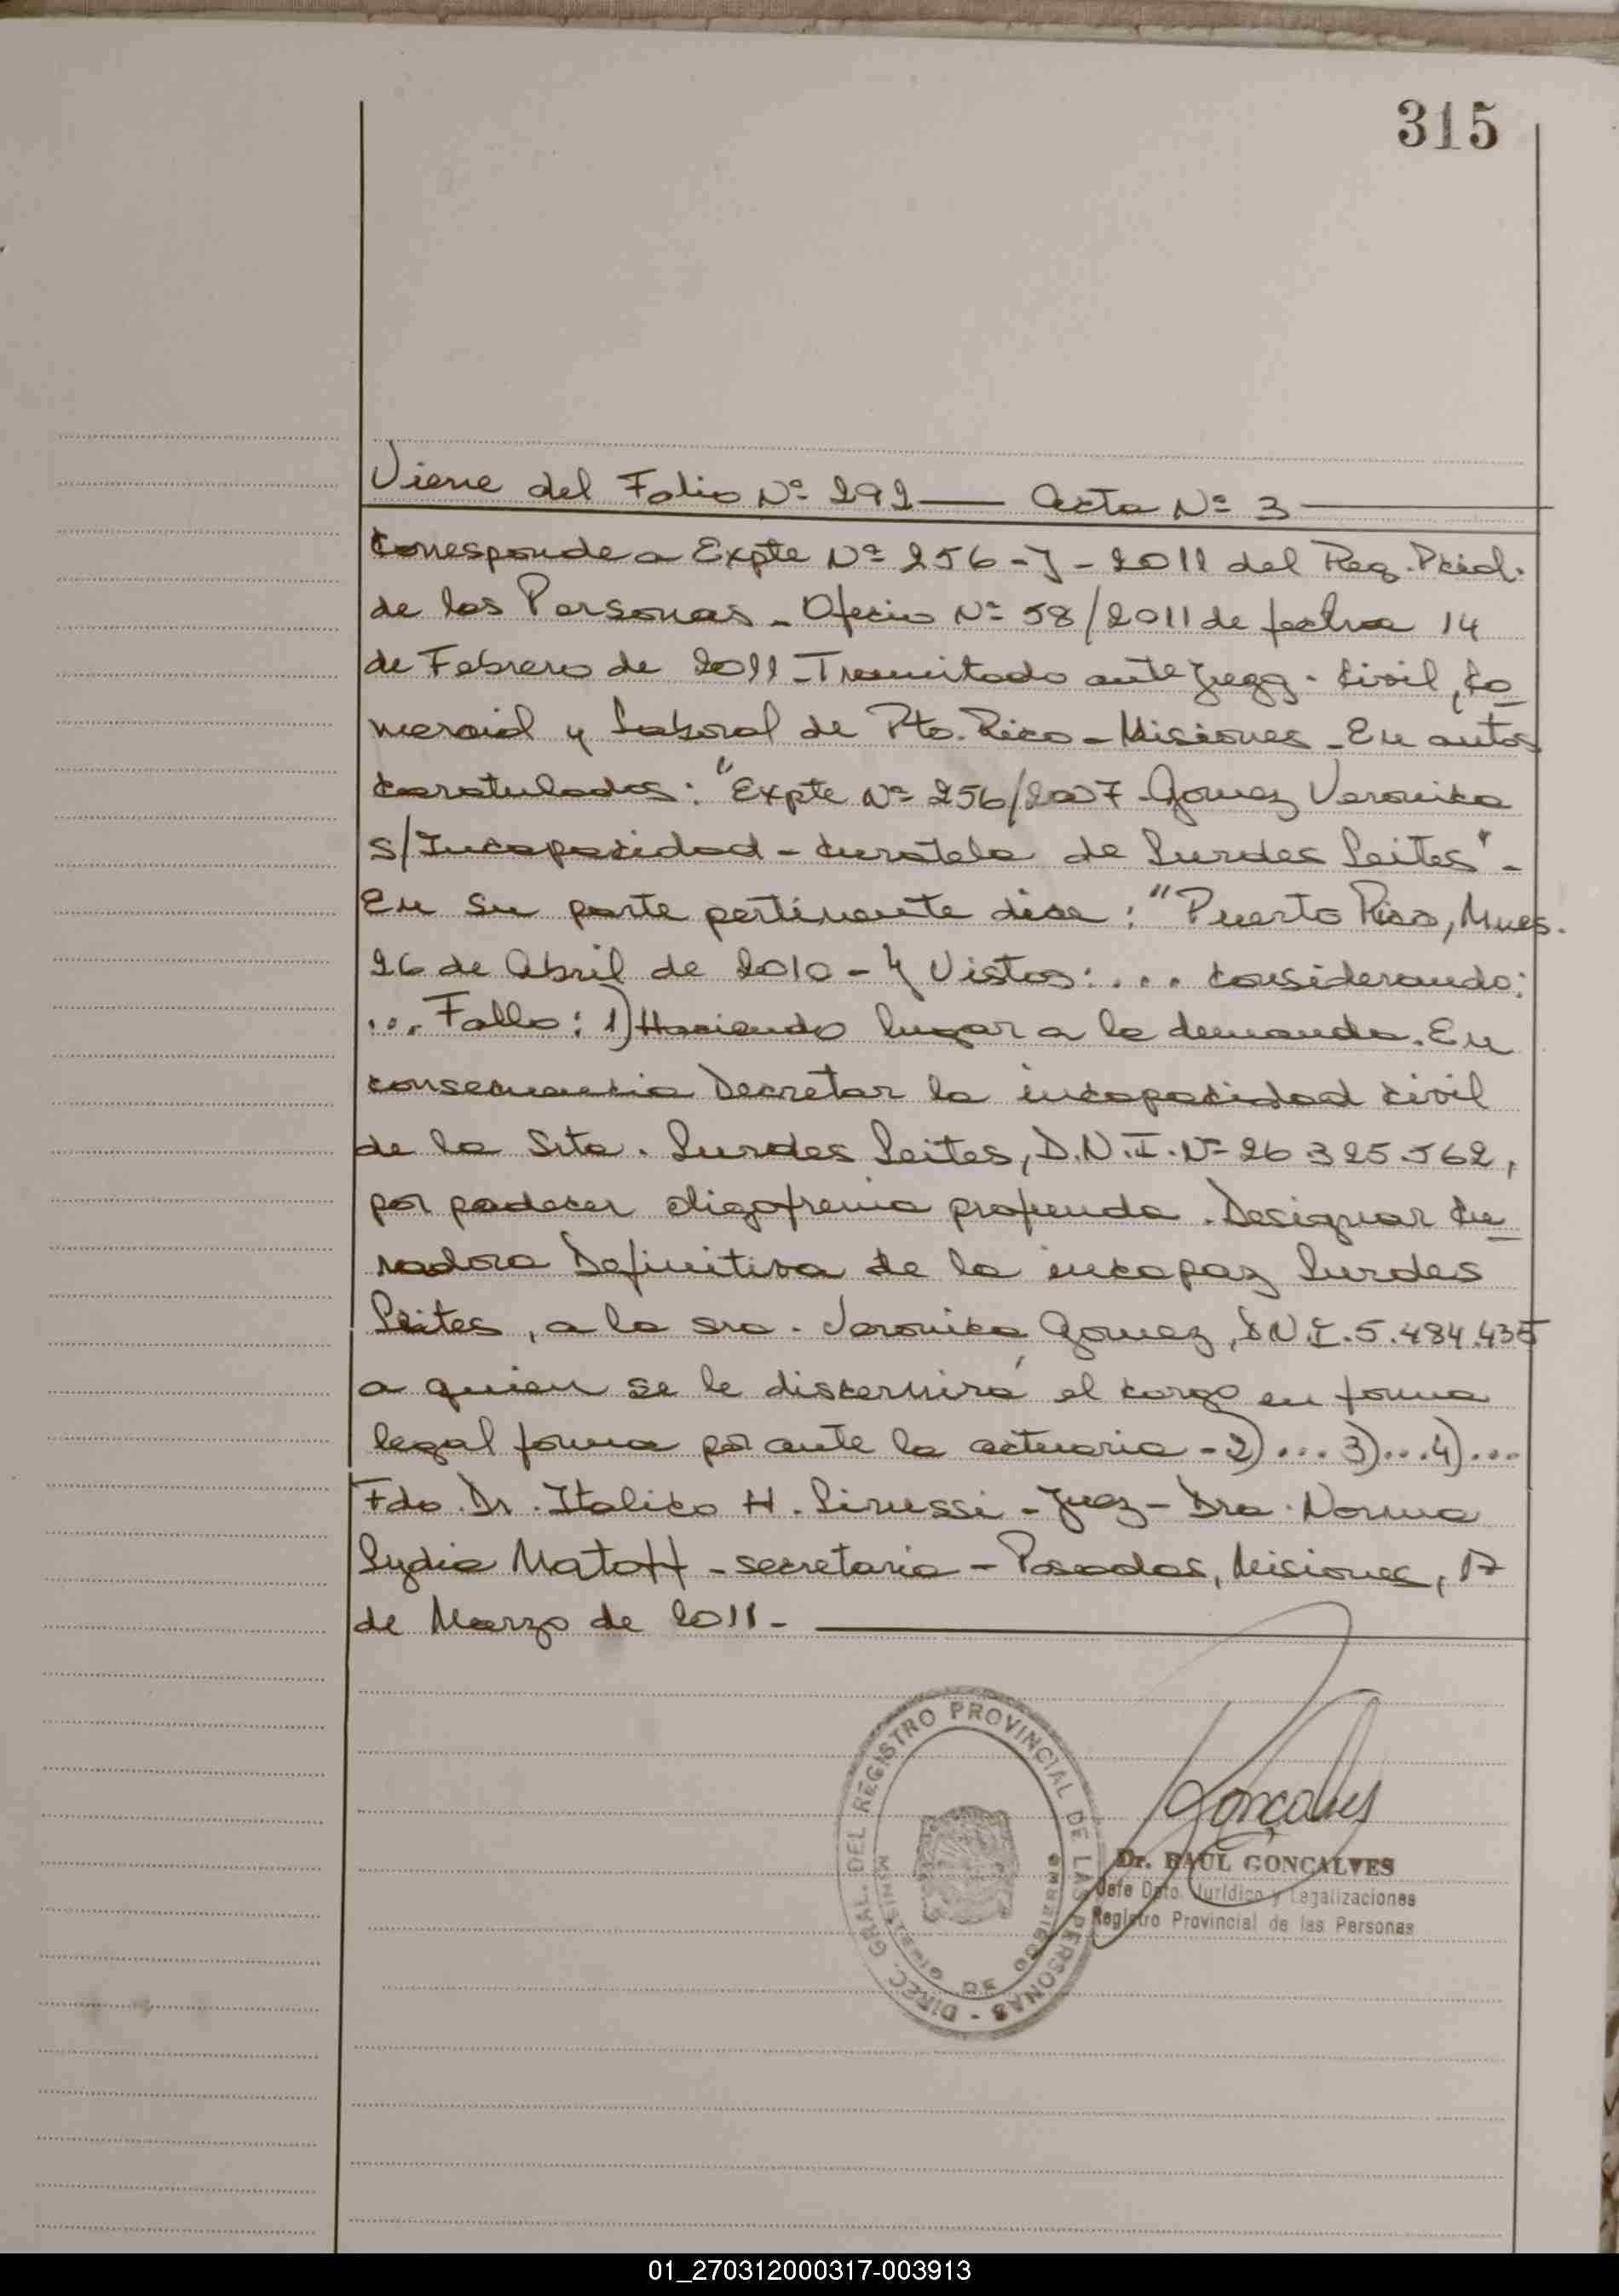 315
Viene del Folio Nº 292 — Acta Nº 3 —
Corresponde a Expte Nº 256-J-2011 del Reg. Pcial.
de las Personas - Oficio Nº 58/2011 de fecha 14
de Febrero de 2011 - Tramitado ante Juzg. Civil, Co
mercial y Laboral de Pto. Rico - Misiones - En autos
caratulados: "Expte Nº 256/2007 Gomez Veronica
s/Incapacidad - Curatela de Lurdes Leites" -
En su parte pertinente dice: "Puerto Rico, Mnes.
26 de Abril de 2010 - Y Vistos: ... Considerando:
... Fallo: 1) Haciendo lugar a la demanda. En
consecuencia Decretar la incapacidad civil
de la Srta. Lurdes Leites, D.N.I. Nº 26.325.562,
por padecer oligofrenia profunda. Designar Cu
radora Definitiva de la incapaz Lurdes
Leites, a la sra. Veronica Gomez, D.N.I. 5.484.435
a quien se le discernirá el cargo en forma
legal forma por ante la actuaria - 2) ... 3) ... 4) ...
Fdo. Dr. Italico H. Sirussi - Juez - Dra. Norma
Lydia Matoff - secretaria - Posadas, Misiones, 17
de Marzo de 2011 -
DIREC. GRAL. DEL REGISTRO PROVINCIAL DE LAS PERSONAS -
MINISTERIO DE GOBIERNO
Gonçalves
Dr. RAUL GONCALVES
Jefe Dpto. Jurídico y Legalizaciones
Registro Provincial de las Personas
01_270312000317-003913